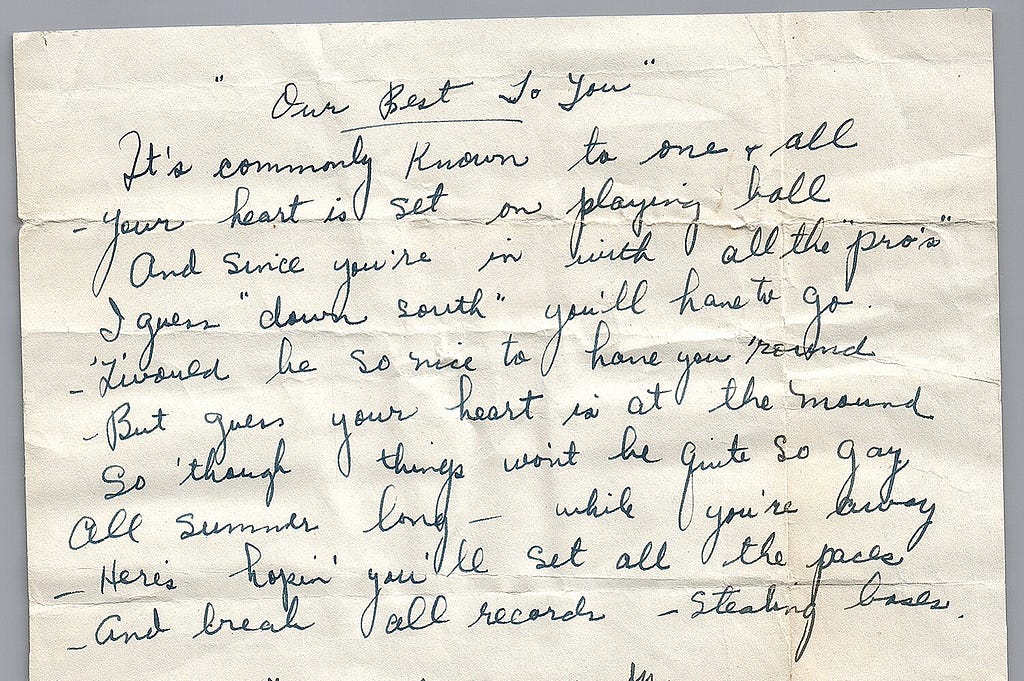 "Our Best To You"
It's commonly known to one + all
- Your heart is set on playing ball
And since you're in with all the "pro's"
I guess "down south" you'll have to go.
- 'Twould be so nice to have you 'round
- But guess your heart is at the mound
So 'though things won't be quite so gay
All summer long - while you're away
- Here's hopin' you'll set all the paces
- And break all records - stealing bases.